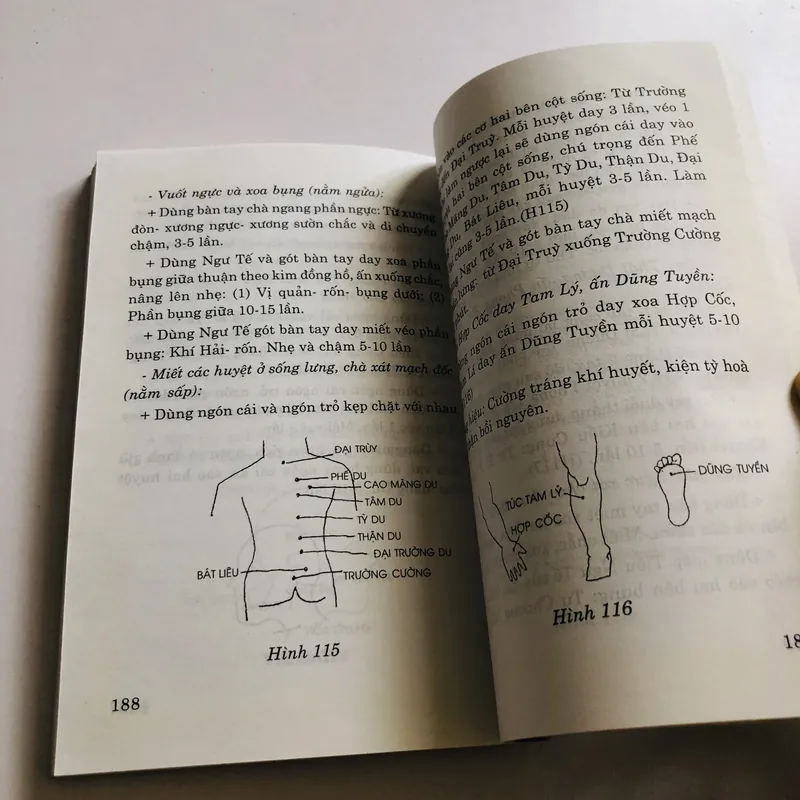 - Vuốt ngực và xoa bụng (nằm ngửa):
+ Dùng bàn tay chà ngang phần ngực: Từ xương
đòn- xương ngực- xương sườn chắc và di chuyển
chậm, 3-5 lần.
+ Dùng Ngư Tế và gót bàn tay day xoa phần
bụng giữa thuận theo kim đồng hồ, ấn xuống chắc,
nâng lên nhẹ: (1) Vị quản- rốn- bụng dưới; (2)
Phần bụng giữa 10-15 lần.
+ Dùng Ngư Tế gót bàn tay day miết véo phần
bụng: Khí Hải- rốn. Nhẹ và chậm 5-10 lần
- Miết các huyệt ở sống lưng, chà xát mạch đốc
(nằm sấp):
+ Dùng ngón cái và ngón trỏ kẹp chặt với nhau
ĐẠI TRÙY
PHẾ DU
CAO MÃNG DU
TÂM DU
TỲ DU
THẬN DU
ĐẠI TRƯỜNG DU
BÁT LIÊU
TRƯỜNG CƯỜNG
Hình 115
188
vào các cơ hai bên cột sống: Từ Trường
Đại Truỳ. Mỗi huyệt day 3 lần, véo 1
làm ngược lại sẽ dùng ngón cái day vào
hai bên cột sống, chú trọng đến Phế
Mãng Du, Tâm Du, Tỳ Du, Thận Du, Đại
Du, Bát Liêu, mỗi huyệt 3-5 lần. Làm
cũng 3-5 lần.(H115)
Ngư Tế và gót bàn tay chà miết mạch
từ Đại Truỳ xuống Trường Cường
Hợp Cốc day Tam Lý, ấn Dũng Tuyền:
ngón cái ngón trỏ day xoa Hợp Cốc,
Lí day ấn Dũng Tuyền mỗi huyệt 5-10
Cường tráng khí huyết, kiện tỳ hoà
bồi nguyên.
TÚC TAM LÝ
HỢP CỐC
DŨNG TUYỀN
Hình 116